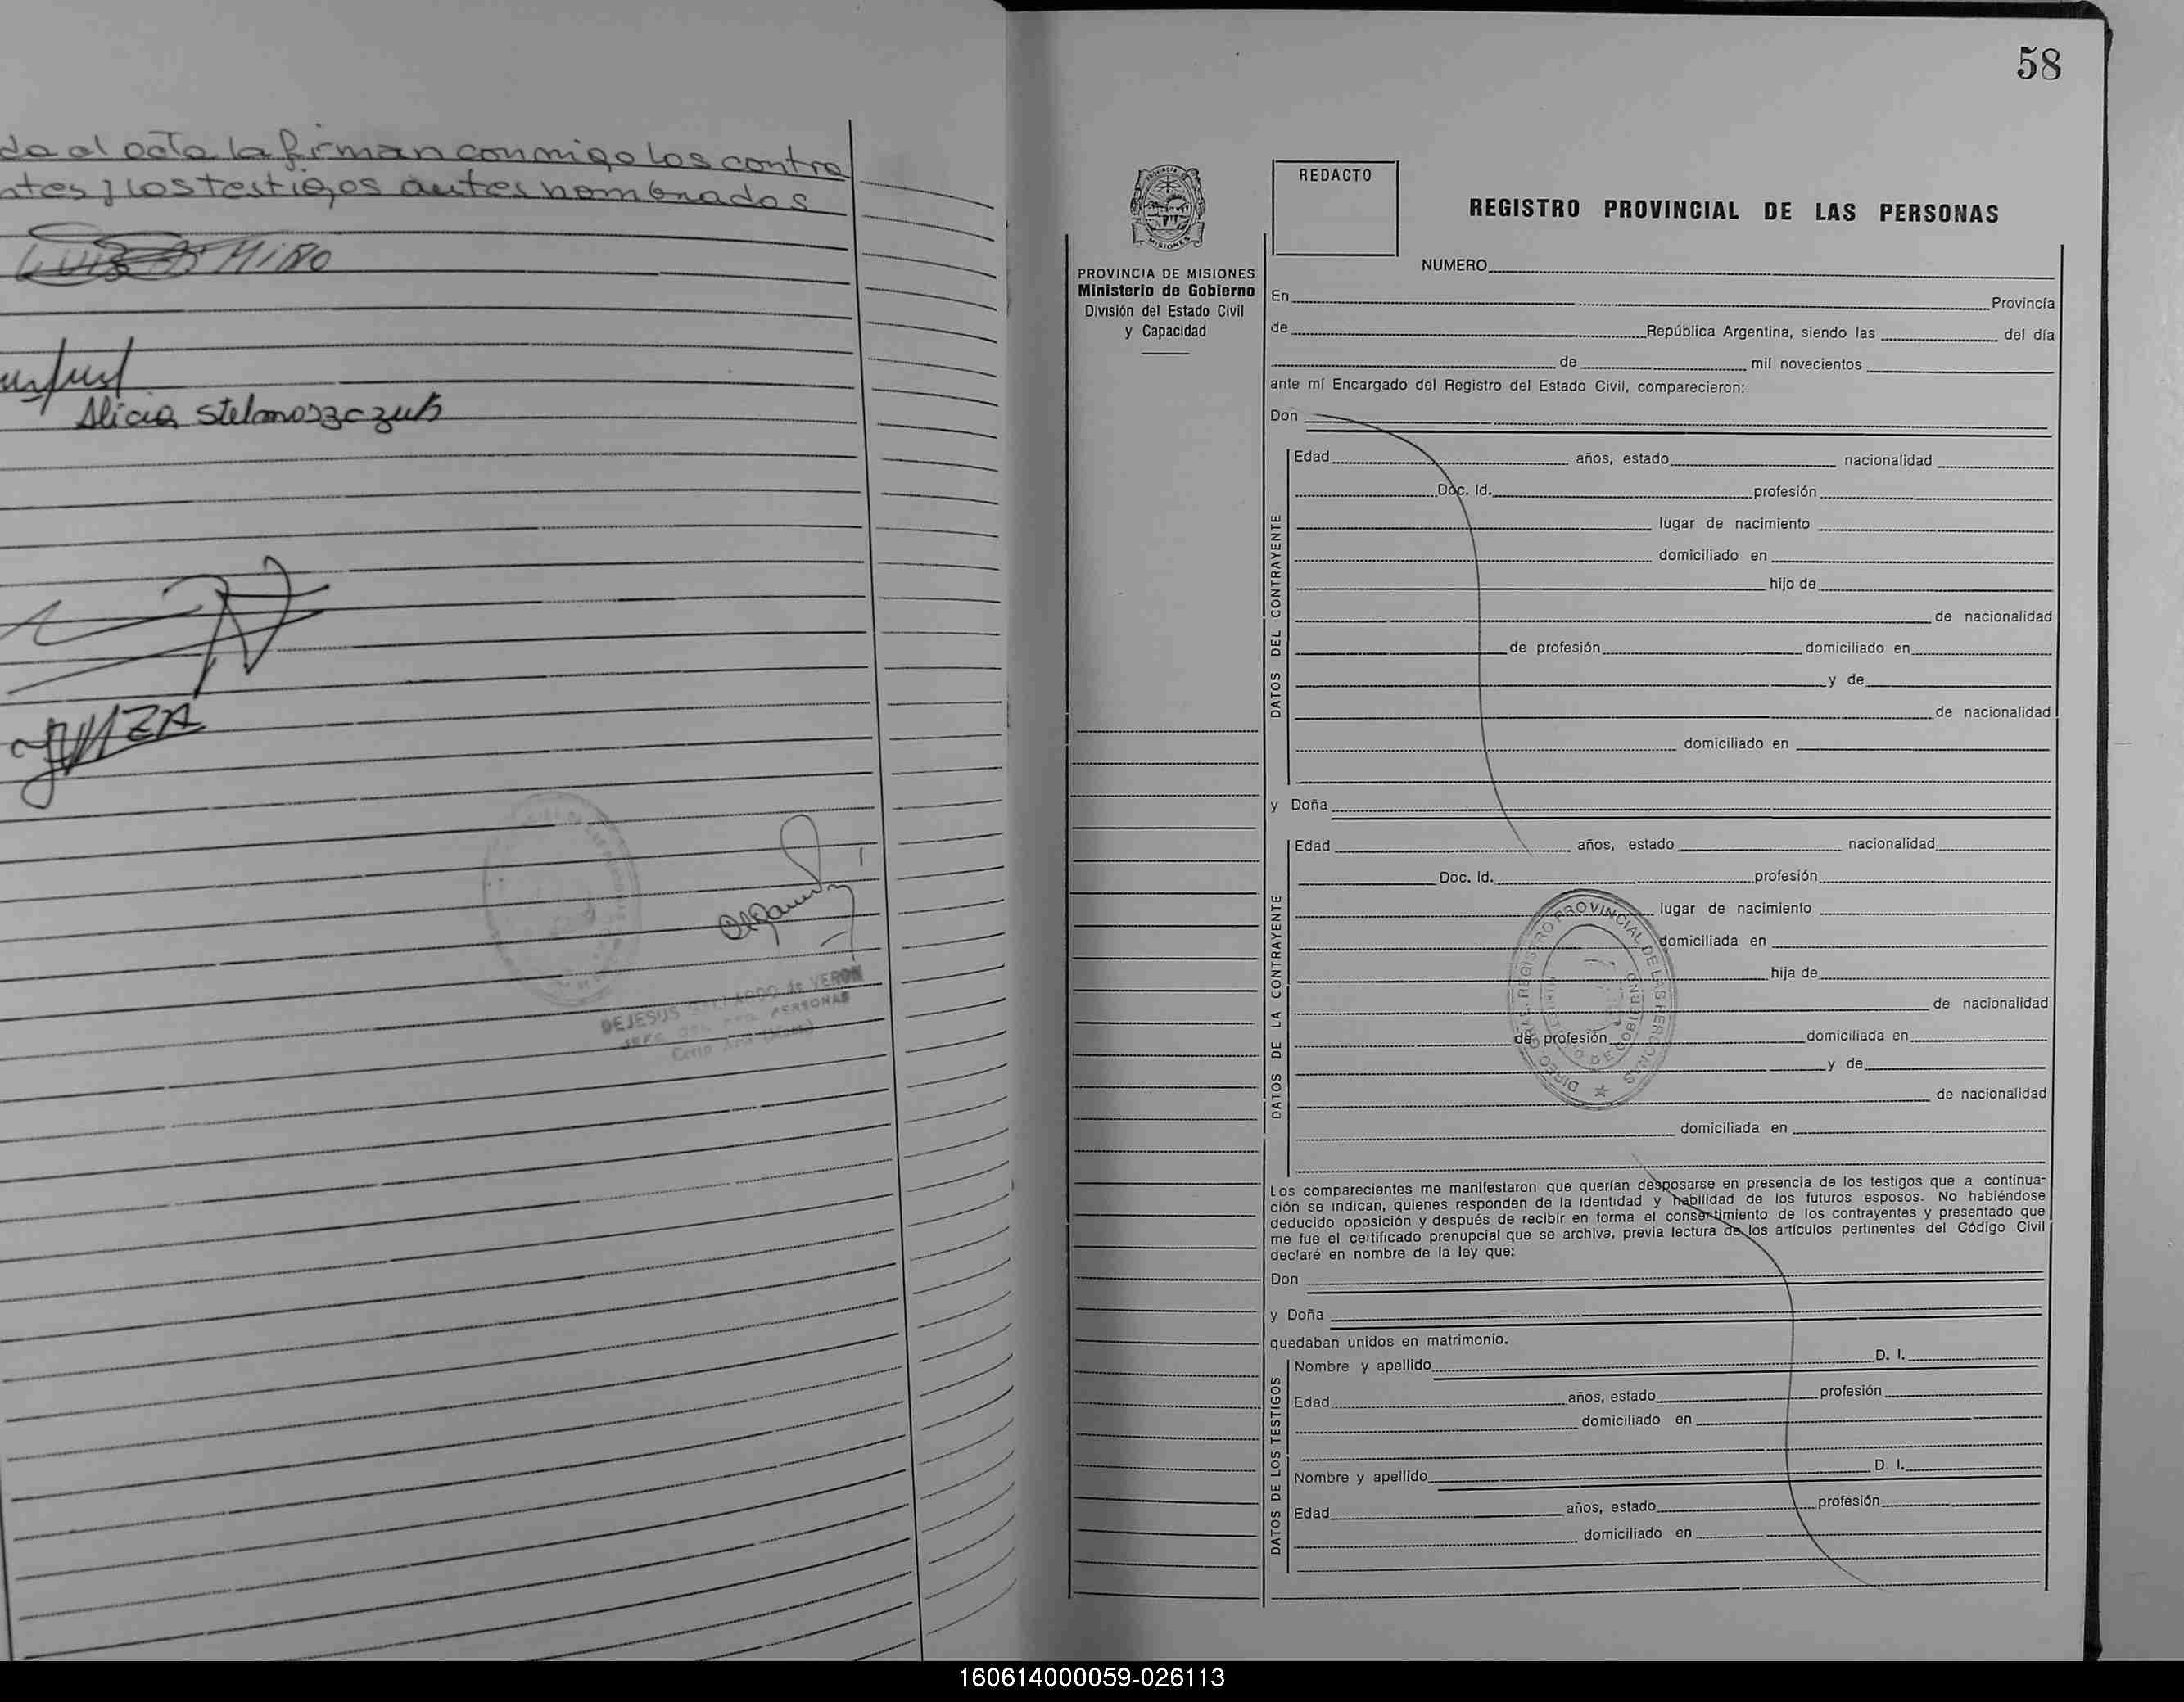 da el acta la firman conmigo los contra
ntes y los testigos antes nombrados
LUIS A MIÑO
Alicia Stelmaszczuk
DEJESUS de VERON
JEFE PERSONAS
58
REDACTO
REGISTRO PROVINCIAL DE LAS PERSONAS
MISIONES
PROVINCIA DE MISIONES
Ministerio de Gobierno
División del Estado Civil
y Capacidad
NUMERO
En Provincia
de República Argentina, siendo las del día
de mil novecientos
ante mí Encargado del Registro del Estado Civil, comparecieron:
Don
DATOS DEL CONTRAYENTE
Edad años, estado nacionalidad
Doc. Id. profesión
lugar de nacimiento
domiciliado en
hijo de
de nacionalidad
de profesión domiciliado en
y de
de nacionalidad
domiciliado en
y Doña
DATOS DE LA CONTRAYENTE
Edad años, estado nacionalidad
Doc. Id. profesión
lugar de nacimiento
domiciliada en
hija de
de nacionalidad
de profesión domiciliada en
y de
de nacionalidad
domiciliada en
DIREC. GRAL. REGISTRO PROVINCIAL DE LAS PERSONAS
DE GOBIERNO
Los comparecientes me manifestaron que querían desposarse en presencia de los testigos que a continua-
ción se indican, quienes responden de la identidad y habilidad de los futuros esposos. No habiéndose
deducido oposición y después de recibir en forma el consentimiento de los contrayentes y presentado que
me fue el certificado prenupcial que se archiva, previa lectura de los artículos pertinentes del Código Civil
declaré en nombre de la ley que:
Don
y Doña
quedaban unidos en matrimonio.
DATOS DE LOS TESTIGOS
Nombre y apellido D. I.
Edad años, estado profesión
domiciliado en
Nombre y apellido D. I.
Edad años, estado profesión
domiciliado en
160614000059-026113